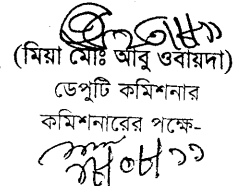 (মিয়া মোঃ আবু ওবায়দা)
ডেপুটি কমিশনার
কমিশনারের পক্ষে-